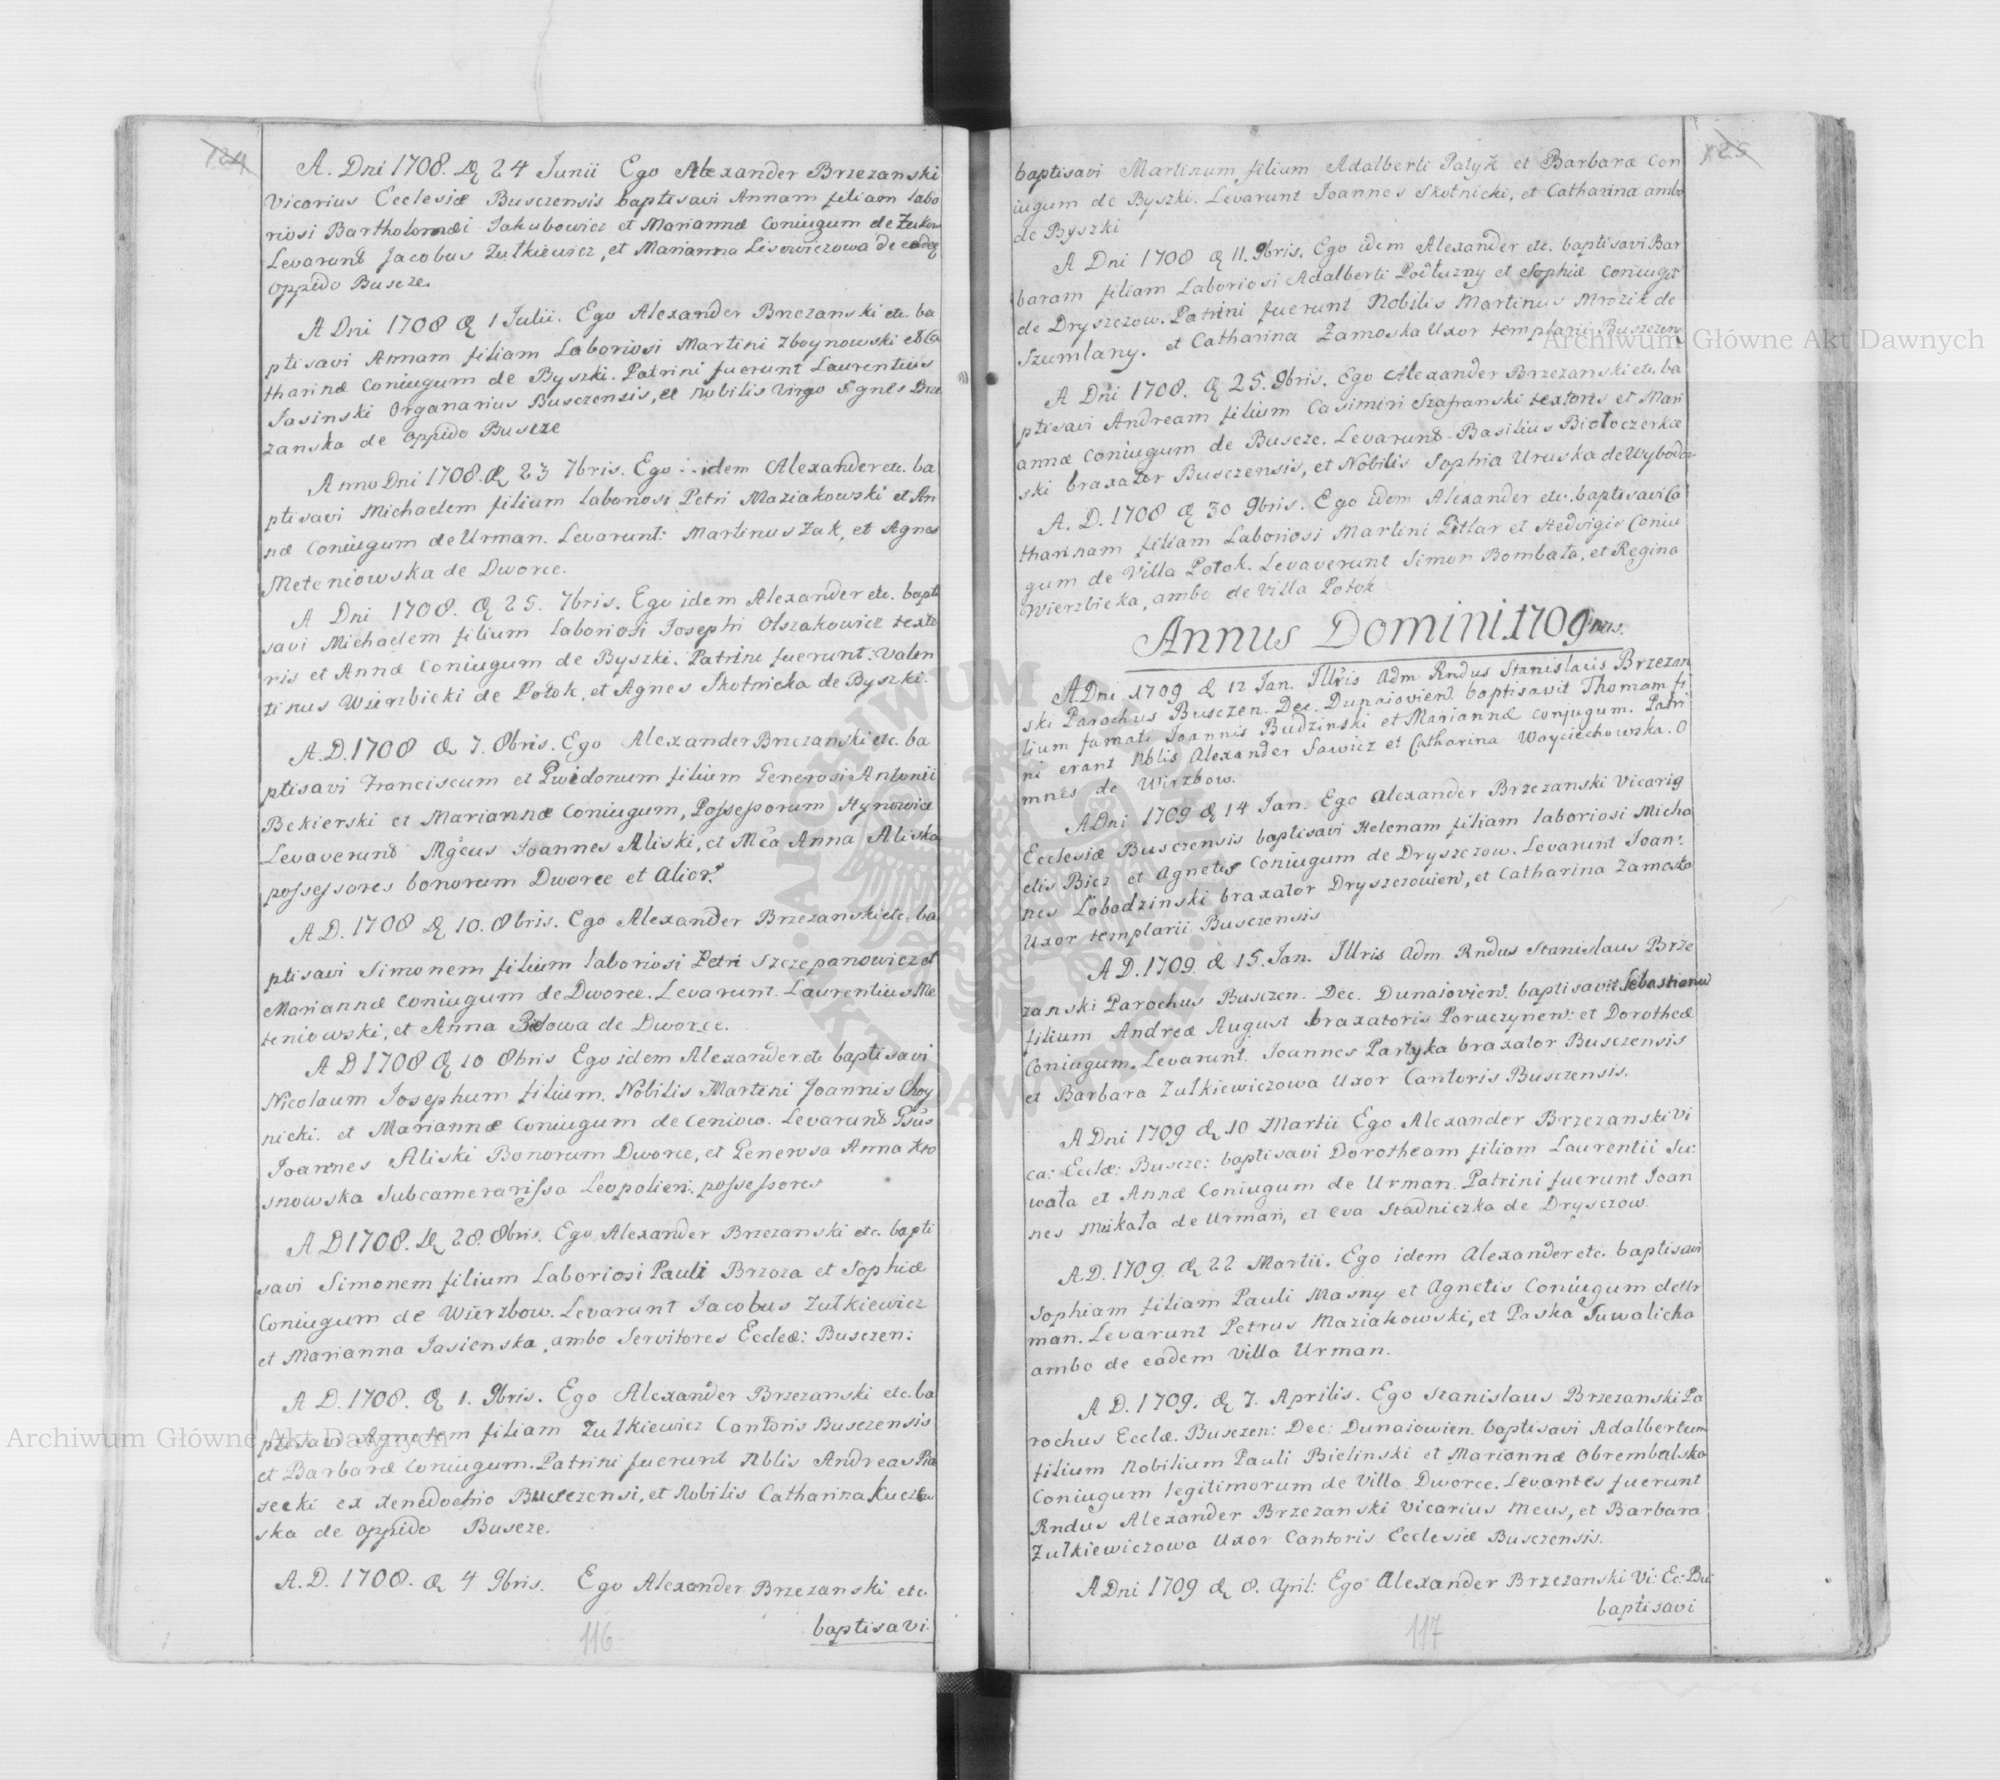 124
A. Dni 1708. D 24 Junii Ego Alexander Brzezanski
Vicarius Ecclesiæ Busczensis baptisavi Annam filiam labo
riosi Bartholomæi Jakubowicz et Mariannæ Coniugum de
Levarunt Jacobus Zułkiewicz, et Marianna Lisowiczowa de eadeq
oppido Buscze.
A Dni 1708 D 1 Julii. Ego Alexander Brzezanski etc. ba
ptisavi Annam filiam Laboriosi Martini Zboynowski et Ca
tharinæ Coniugum de Byszki. Patrini fuerunt Laurentius
Jasinski Organarius Busczensis, et Nobilis Virgo Agnes Brze
zanska de oppido Buscze
Anno Dni 1708. D 23 7bris. Ego idem Alexander etc. ba
ptisavi Michaelem filium laboriosi Petri Maziakowski et An
næ Coniugum de Urman. Levarunt: Martinus Zak, et Agnes
Meteniowska de Dworce.
A Dni 1708. D 25. 7bris. Ego idem Alexander etc. bapti
savi Michaelem filium laboriosi Josephi Olszakowicz texto
ris et Annæ Coniugum de Byszki. Patrini fuerunt: Valen
tinus Wierzbicki de Potok, et Agnes Skotnicka de Byszki.
A.D. 1708 D 7. 8bris. Ego Alexander Brzezanski etc. ba
ptisavi Franciscum et Gwidonum filium Generosi Antonii
Bekierski et Mariannæ Coniugum, Possessorum Hynowice
Levaverunt Mgcus Joannes Aliski, et Mca Anna Aliska
possessores bonorum Dworce et alior.
A D. 1708 D 10. 8bris. Ego Alexander Brzezanski etc. ba
ptisavi Simonem filium laboriosi Petri Szczepanowicz et
Mariannæ Coniugum de Dworce. Levarunt. Laurentius Me
teniowski, et Anna de Dworce.
A D 1708 D 10 8bris Ego idem Alexander etc baptisavi
Nicolaum Josephum filium. Nobilis Martini Joannis Choy
nicki. et Mariannæ Coniugum de Ceniow. Levarunt Gsus
Joannes Aliski Bonorum Dworce, et Generosa Anna Kro
snowska Subcamerarissa Leopolien: possessores
A D 1708. D 28. 8bris. Ego Alexander Brzezanski etc. bapti
savi Simonem filium Laboriosi Pauli Brzoza et Sophiæ
Coniugum de Wierzbow. Levarunt Jacobus Zułkiewicz
et Marianna Jasienska, ambo Servitores Eccleæ: Busczen:
A D. 1708. D 1. 9bris. Ego Alexander Brzezanski etc. ba
ptisavi Agnetem filiam Zułkiewicz Cantoris Busczensis
et Barbaræ Coniugum. Patrini fuerunt Nblis Andreas Pia
secki ex Xenodochio Busczensi, et Nobilis Catharina
ska de oppido Buscze.
A. D. 1708. D 4 9bris. Ego Alexander Brzezanski etc.
baptisavi.
116
125
baptisavi Martinum filium Adalberti Patyk et Barbaræ Con
iugum de Byszki. Levarunt Joannes Skotnicki, et Catharina ambo
de Byszki
A Dni 1708 D 11. 9bris. Ego idem Alexander etc. baptisavi Bar
baram filiam Laboriosi Adalberti Podłuzny et Sophiæ Coniugum
de Dryszczow. Patrini fuerunt Nobilis Martinus Mrozik de
Szumlany. et Catharina Zamoska Uxor templarii Busczen
A Dni 1708. D 25. 9bris. Ego Alexander Brzezanski etc. ba
ptisavi Andream filium Casimiri Szafranski textoris et Mari
annæ Coniugum de Buscze. Levarunt. Basilius Białoczerkie
ski braxator Busczensis, et Nobilis Sophia Uruska de
A. D. 1708 D 30 9bris. Ego idem Alexander etc. baptisavi Ca
tharinam filiam Laboriosi Martini Gitlar et Hedvigis Coniu
gum de Villa Potok. Levaverunt Simon Bombała, et Regina
Wierzbicka, ambo de Villa Potok
Annus Domini 1709nus.
A.Dni 1709 D 12 Jan. Illris Adm Rndus Stanislaus Brzezan
ski Parochus Busczen. Dec. Dunaiovien. baptisavit Thomam fi
lium famati Joannis Budzinski et Mariannæ conjugum. Patri
ni erant Nblis Alexander Sawicz et Catharina Woyciechowska. O
mnes de Wirzbow.
A Dni 1709 D 14 Jan. Ego Alexander Brzezanski Vicarig
Ecclesiæ Busczensis baptisavi Helenam filiam laboriosi Micha
elis Bicz et Agnetis Coniugum de Dryszczow. Levarunt Joan:
nes Lobodzinski braxator Dryszczowien, et Catharina Zamoska
Uxor templarii Busczensis
A D. 1709. D 15. Jan. Illris Adm. Rndus Stanislaus Brze
zanski Parochus Busczen. Dec. Dunaiovien. baptisavit Sebastianum
filium Andreæ August braxatoris Poruczynen: et Dorotheæ
Coniugum. Levarunt. Joannes Partyka braxator Busczensis
et Barbara Zułkiewiczowa Uxor Cantoris Busczensis.
A Dni 1709 D 10 Martii Ego Alexander Brzezanski Vi
ca: Ecclæ: Buscze: baptisavi Dorotheam filiam Laurentii Su:
wała et Annæ Coniugum de Urman. Patrini fuerunt Joan
nes Mikała de Urman, et Eva Stadniczka de Drysczow.
A.D. 1709. D 22 Martii. Ego idem Alexander etc. baptisavi
Sophiam filiam Pauli Masny et Agnetis Coniugum de Ur
man. Levarunt Petrus Maziakowski, et Paska Suwalicha
ambo de eadem Villa Urman.
A D. 1709. D 7. Aprilis. Ego Stanislaus Brzezanski Pa
rochus Ecclæ. Busczen: Dec: Dunaiowien. baptisavi Adalbertum
filium Nobilium Pauli Bielinski et Mariannæ Obrembalska
Coniugum legitimorum de Villa Dworce. Levantes fuerunt
Rndus Alexander Brzezanski Vicarius Meus, et Barbara
Zułkiewiczowa Uxor Cantoris Ecclesiæ Busczensis.
A Dni 1709 D 8. April: Ego Alexander Brzezanski Vi: Ec: Bu:
baptisavi
117
Archiwum Główne Akt Dawnych
Archiwum Główne Akt Dawnych